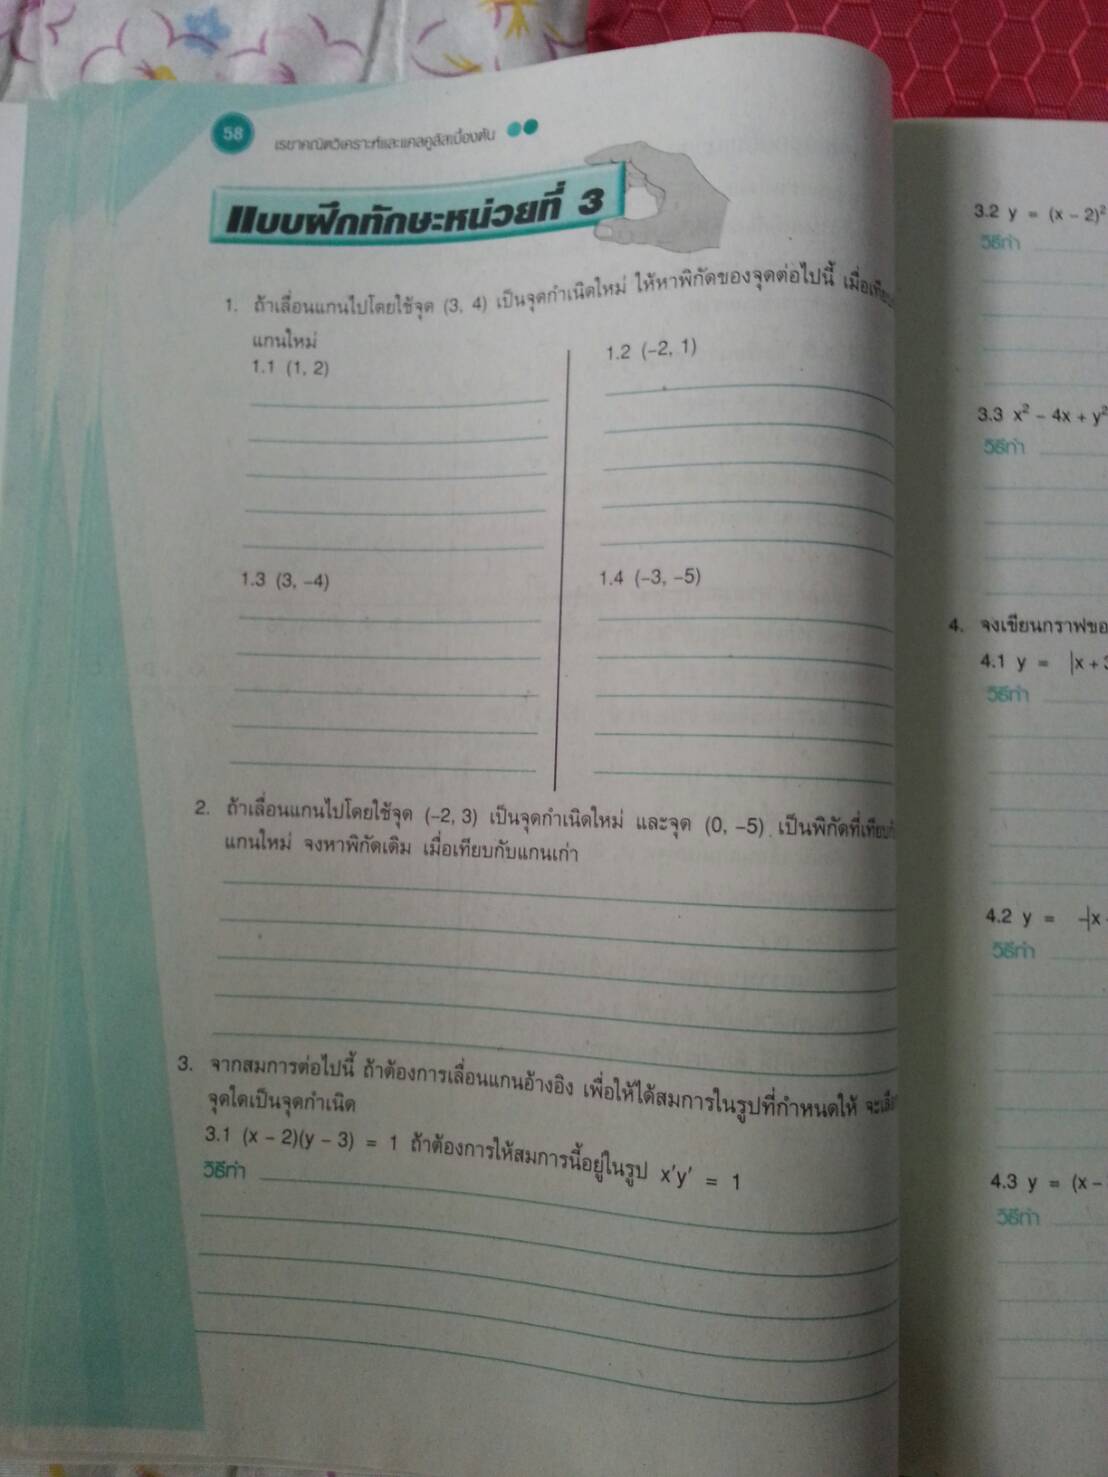 58 เรขาคณิตวิเคราะห์และแคลคูลัสเบื้องต้น
แบบฝึกทักษะหน่วยที่ 3
1. ถ้าเลื่อนแกนไปโดยใช้จุด (3, 4) เป็นจุดกำเนิดใหม่ ให้หาพิกัดของจุดต่อไปนี้
แกนใหม่
1.1 (1, 2)
1.2 (-2, 1)
1.3 (3, -4)
1.4 (-3, -5)
2. ถ้าเลื่อนแกนไปโดยใช้จุด (-2, 3) เป็นจุดกำเนิดใหม่ และจุด (0, -5) เป็นพิกัดที่
แกนใหม่ จงหาพิกัดเดิม เมื่อเทียบกับแกนเก่า
3. จากสมการต่อไปนี้ ถ้าต้องการเลื่อนแกนอ้างอิง เพื่อให้ได้สมการในรูปที่กำหนดให้
จุดใดเป็นจุดกำเนิด
3.1 (x - 2)(y - 3) = 1 ถ้าต้องการให้สมการนี้อยู่ในรูป x'y' = 1
วิธีทำ
3.2 y = (x - 2)²
วิธีทำ
3.3 x² - 4x + y²
วิธีทำ
4. จงเขียนกราฟ
4.1 y = |x +
วิธีทำ
4.2 y = -|x
วิธีทำ
4.3 y = (x -
วิธีทำ